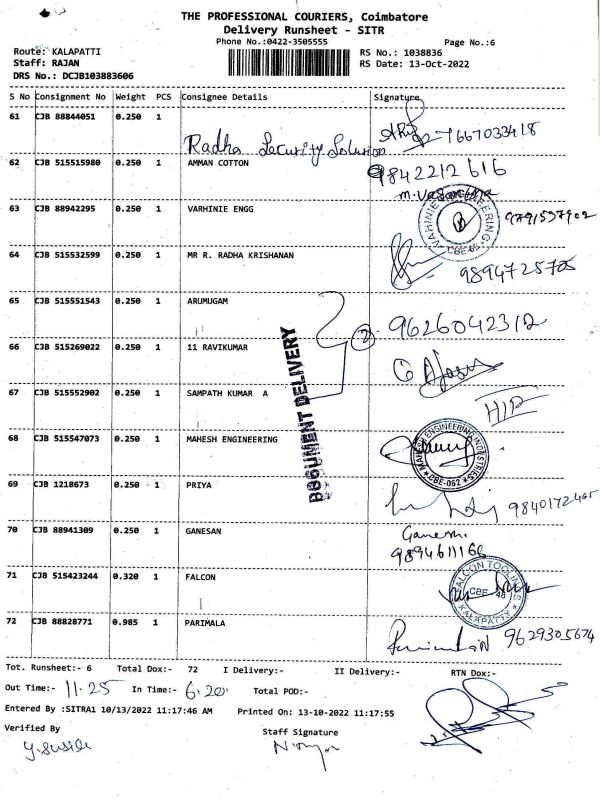 THE PROFESSIONAL COURIERS, Coimbatore
Delivery Runsheet - SITR
Phone No.:0422-3505555
Page No.:6
Route: KALAPATTI
RS No.: 1038836
Staff: RAJAN
RS Date: 13-Oct-2022
DRS No.: DCJB103883606
S No Consignment No Weight PCS Consignee Details Signature
61 CJB 88844051 0.250 1
Radha Security Solution 7667033418
62 CJB 515515980 0.250 1 AMMAN COTTON 9842212616
63 CJB 88942295 0.250 1 VARHINIE ENGG 9791537902
VAHINIE ENGINEERING
CBE-62
64 CJB 515532599 0.250 1 MR R. RADHA KRISHANAN 9894725705
65 CJB 515551543 0.250 1 ARUMUGAM 9626042312
66 CJB 515269022 0.250 1 11 RAVIKUMAR
2
DOCUMENT DELIVERY
67 CJB 515552902 0.250 1 SAMPATH KUMAR A
68 CJB 515547073 0.250 1 MAHESH ENGINEERING
MAHESH ENGINEERING INDUSTRIES
CBE-062
69 CJB 1218673 0.250 1 PRIYA 9840172465
70 CJB 88941309 0.250 1 GANESAN Ganesh.
9894611166
71 CJB 515423244 0.320 1 FALCON
FALCON TOOLINGS
CBE - 48
KALAPATTY
72 CJB 88828771 0.985 1 PARIMALA 9629305674
Tot. Runsheet:- 6 Total Dox:- 72 I Delivery:- II Delivery:- RTN Dox:-
Out Time:- 11.25 In Time:- 6.20 Total POD:-
Entered By :SITRA1 10/13/2022 11:17:46 AM Printed On: 13-10-2022 11:17:55
Verified By Staff Signature